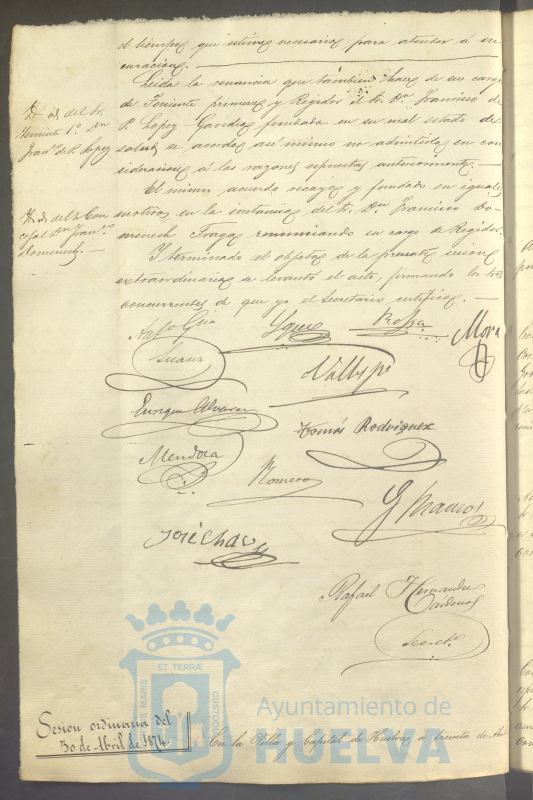 el tiempo que estime necesario para atender á su
curacion.
Leida la renuncia que tambien hace de su cargo
de Teniente primero y Regidor el Sr. Dn. Francisco de
P. Lopez fundada en su mal estado de
salud se acordó asi mismo no admitirla en con
sideracion á las razones espuestas anteriormente.
Id. id. del Sr.
Teniente 1º Dn
Franco. de P. Lopez
El mismo acuerdo recayó y fundado en iguales
motivos en la instancia del Sr. Dn. Francisco Do-
menech renunciando su cargo de Regidor.
Id. id. del Sr. Con
cejal Dn Franco.
Domenech.
Y terminado el objeto de la presente sesion
extraordinaria se levantó el acto, firmando los Sres.
concurrentes de que yo el Secretario certifico.
Lopez
Mora
Suarez
Enrique Alvarez
Tomás Rodriguez
Mendoza
Romero
José Chav
Rafael Hernandez
Cárdenas
Secreto.
Sesion ordinaria del
30 de Abril de 1874.
En la Villa y Capital de Huelva á treinta de
ET TERRÆ
MARIS
CUSTODIA
Ayuntamiento de
HUELVA